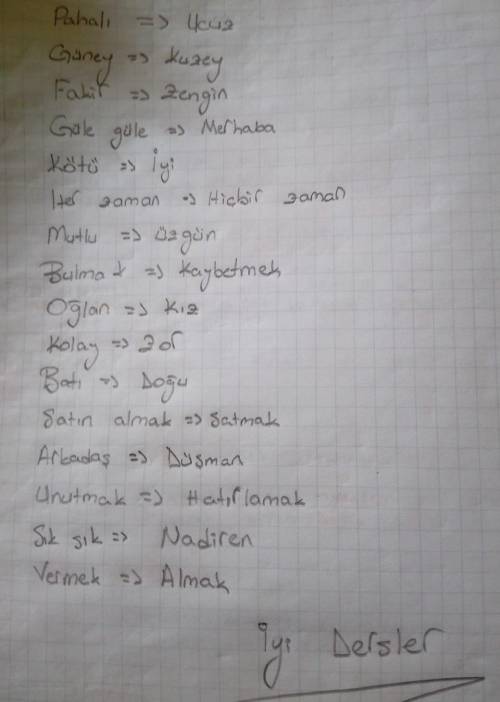 Pahalı => Ucuz
Güney => Kuzey
Fakir => Zengin
Güle güle => Merhaba
Kötü => İyi
Her zaman => Hiçbir zaman
Mutlu => Üzgün
Bulmak => Kaybetmek
Oğlan => Kız
Kolay => Zor
Batı => Doğu
Satın almak => Satmak
Arkadaş => Düşman
Unutmak => Hatırlamak
Sık sık => Nadiren
Vermek => Almak
İyi Dersler